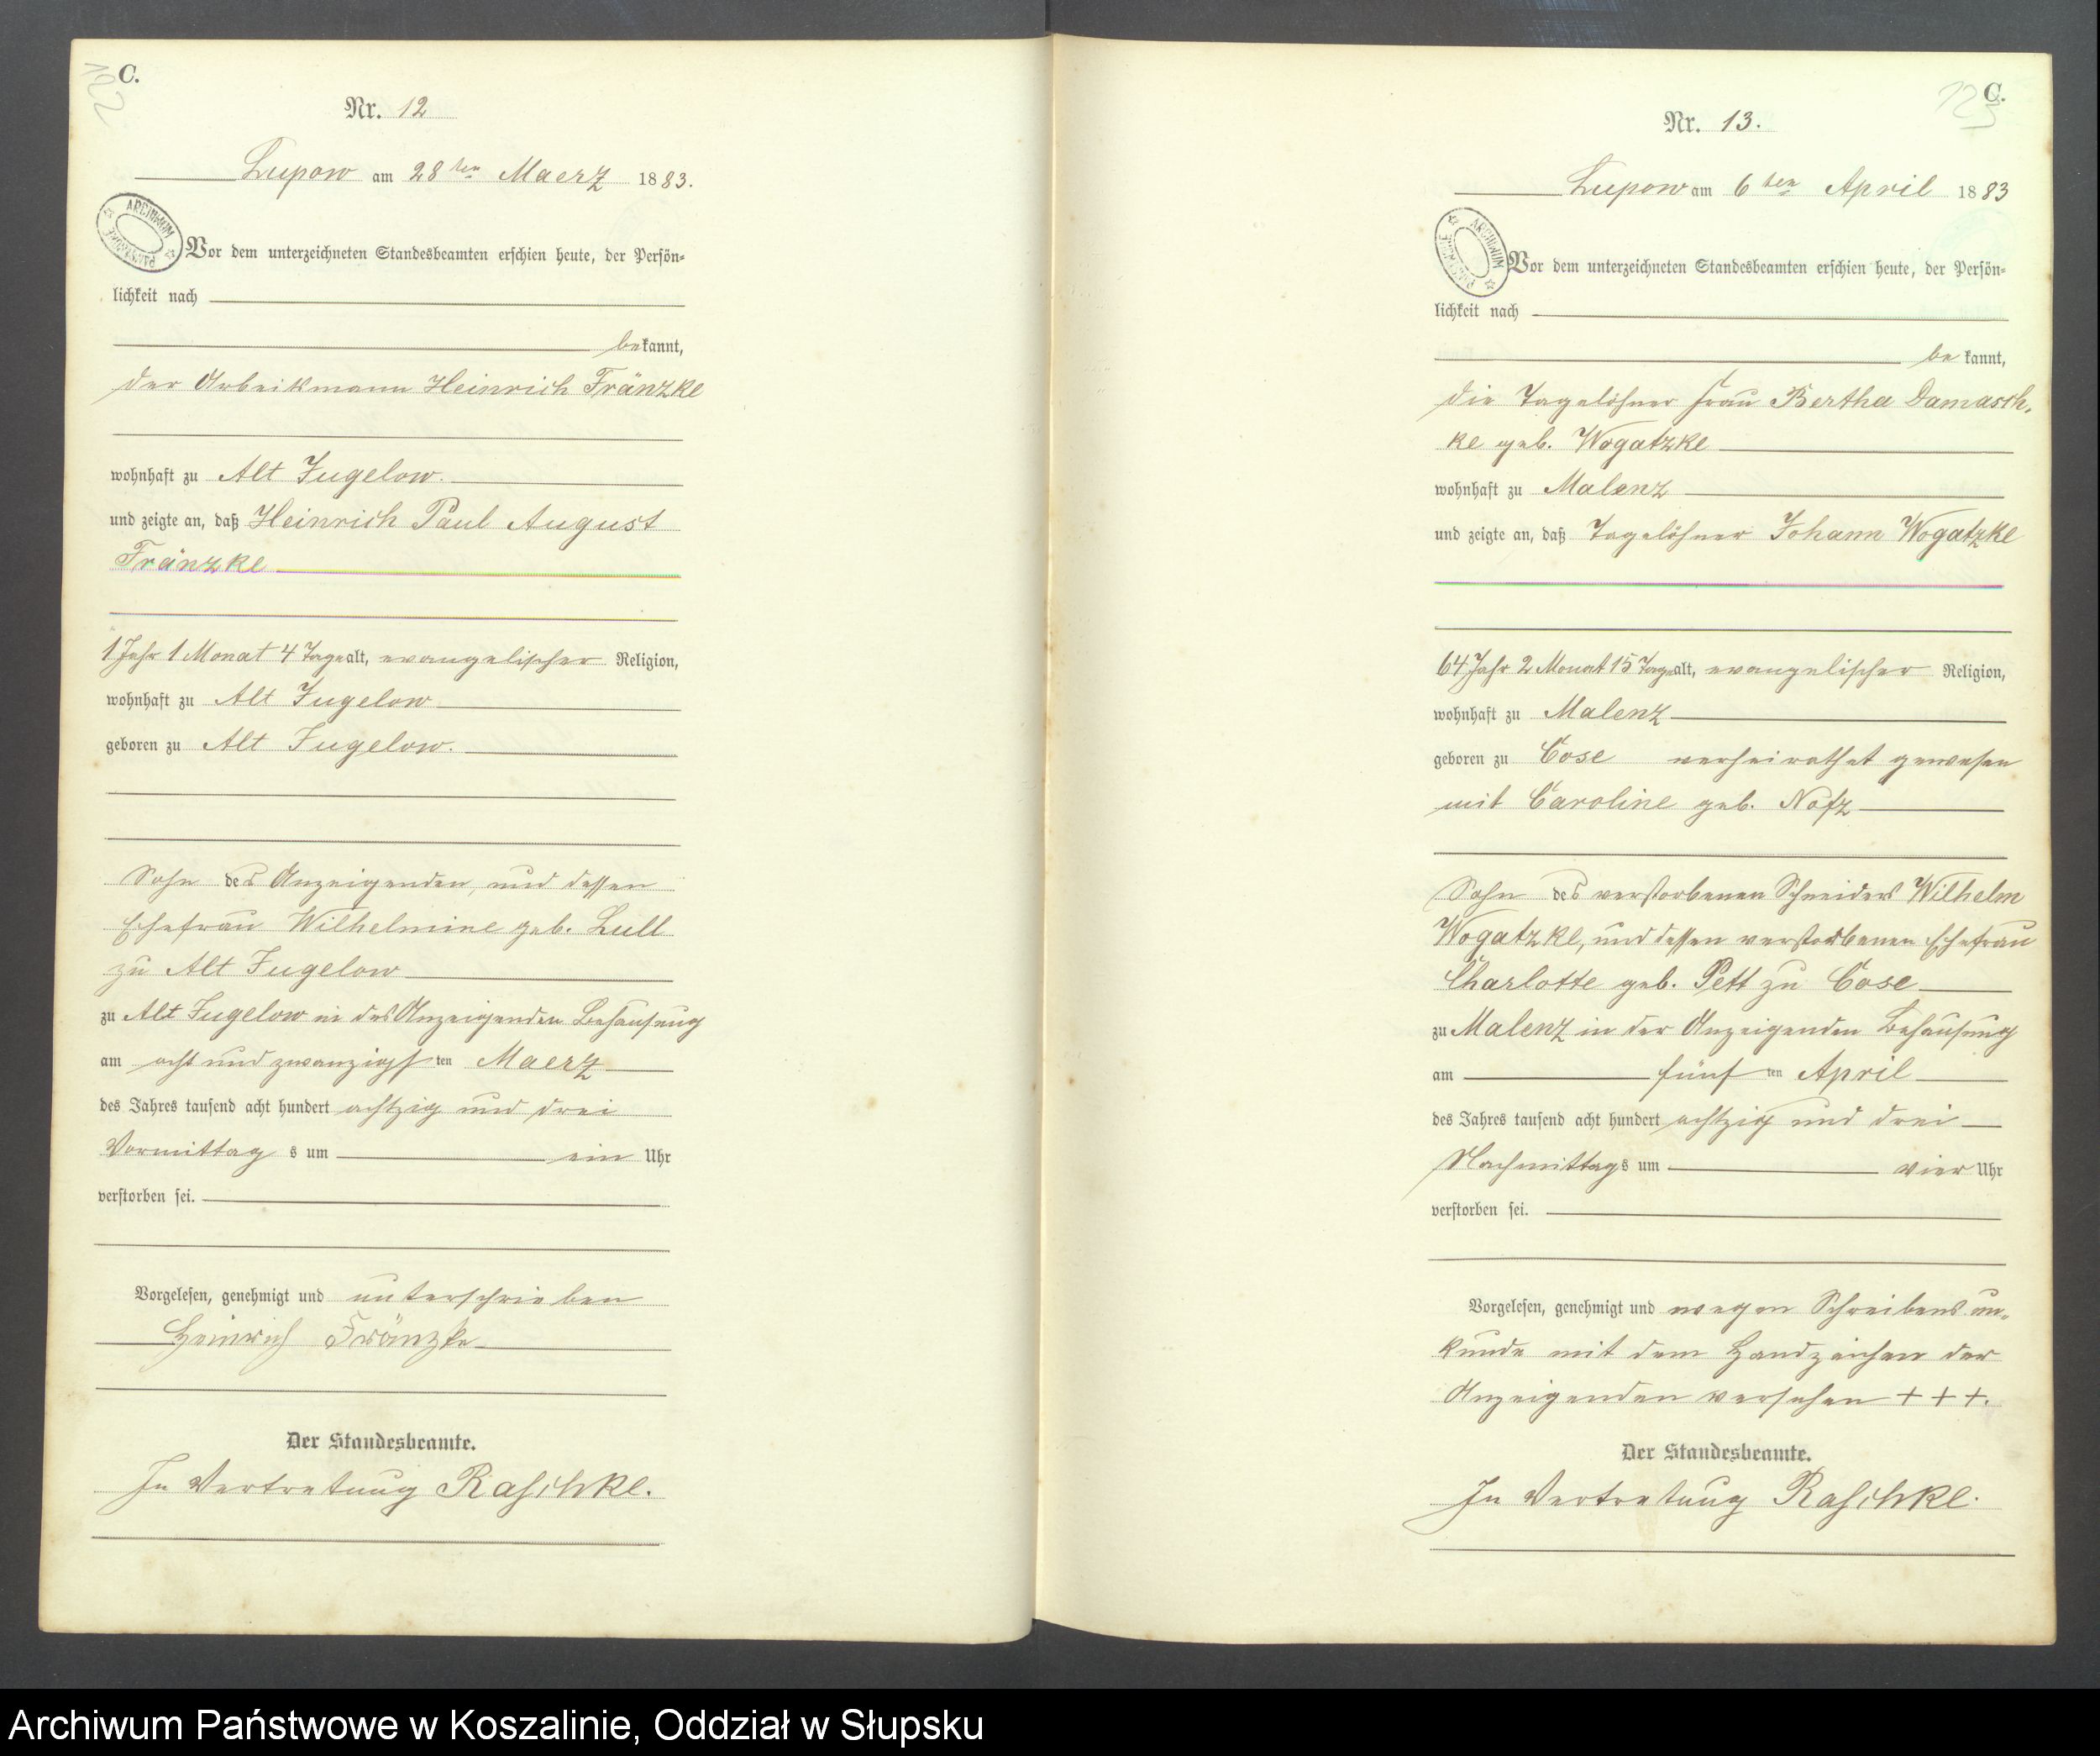 C.
122
Nr. 12
Lupow am 28ten Maerz 1883.
ARCHIWUM PAŃSTWOWE
Vor dem unterzeichneten Standesbeamten erschien heute, der Persön-
lichkeit nach
bekannt,
der Arbeitsmann Heinrich Fränzke
wohnhaft zu Alt Jugelow.
und zeigte an, daß Heinrich Paul August
Fränzke
1 Jahr 1 Monat 4 Tage alt, evangelischer Religion,
wohnhaft zu Alt Jugelow
geboren zu Alt Jugelow.
Sohn des Anzeigenden, und dessen
Ehefrau Wilhelmine geb. Lull
zu Alt Jugelow
zu Alt Jugelow in des Anzeigenden Behausung
am acht und zwanzigsten Maerz
des Jahres tausend acht hundert achtzig und drei
Vormittags um ein Uhr
verstorben sei.
Vorgelesen, genehmigt und unterschrieben
Heinrich Fränzke
Der Standesbeamte.
In Vertretung Raschke.
C.
123
Nr. 13.
Lupow am 6ten April 1883
ARCHIWUM PAŃSTWOWE
Vor dem unterzeichneten Standesbeamten erschien heute, der Persön-
lichkeit nach
bekannt,
die Tagelöhner Frau Bertha Damasch-
ke geb. Wogatzke
wohnhaft zu Malenz
und zeigte an, daß Tagelöhner Johann Wogatzke
64 Jahr 2 Monat 15 Tage alt, evangelischer Religion,
wohnhaft zu Malenz
geboren zu Cose verheirathet gewesen
mit Caroline geb. Nofz
Sohn des verstorbenen Schneiders Wilhelm
Wogatzke, und dessen verstorbenen Ehefrau
Charlotte geb. Pett zu Cose
zu Malenz in der Anzeigenden Behausung
am fünften April
des Jahres tausend acht hundert achtzig und drei
Nachmittags um vier Uhr
verstorben sei.
Vorgelesen, genehmigt und wegen Schreibens un-
kunde mit dem Handzeichen der
Anzeigenden versehen + + +.
Der Standesbeamte.
In Vertretung Raschke.
Archiwum Państwowe w Koszalinie, Oddział w Słupsku